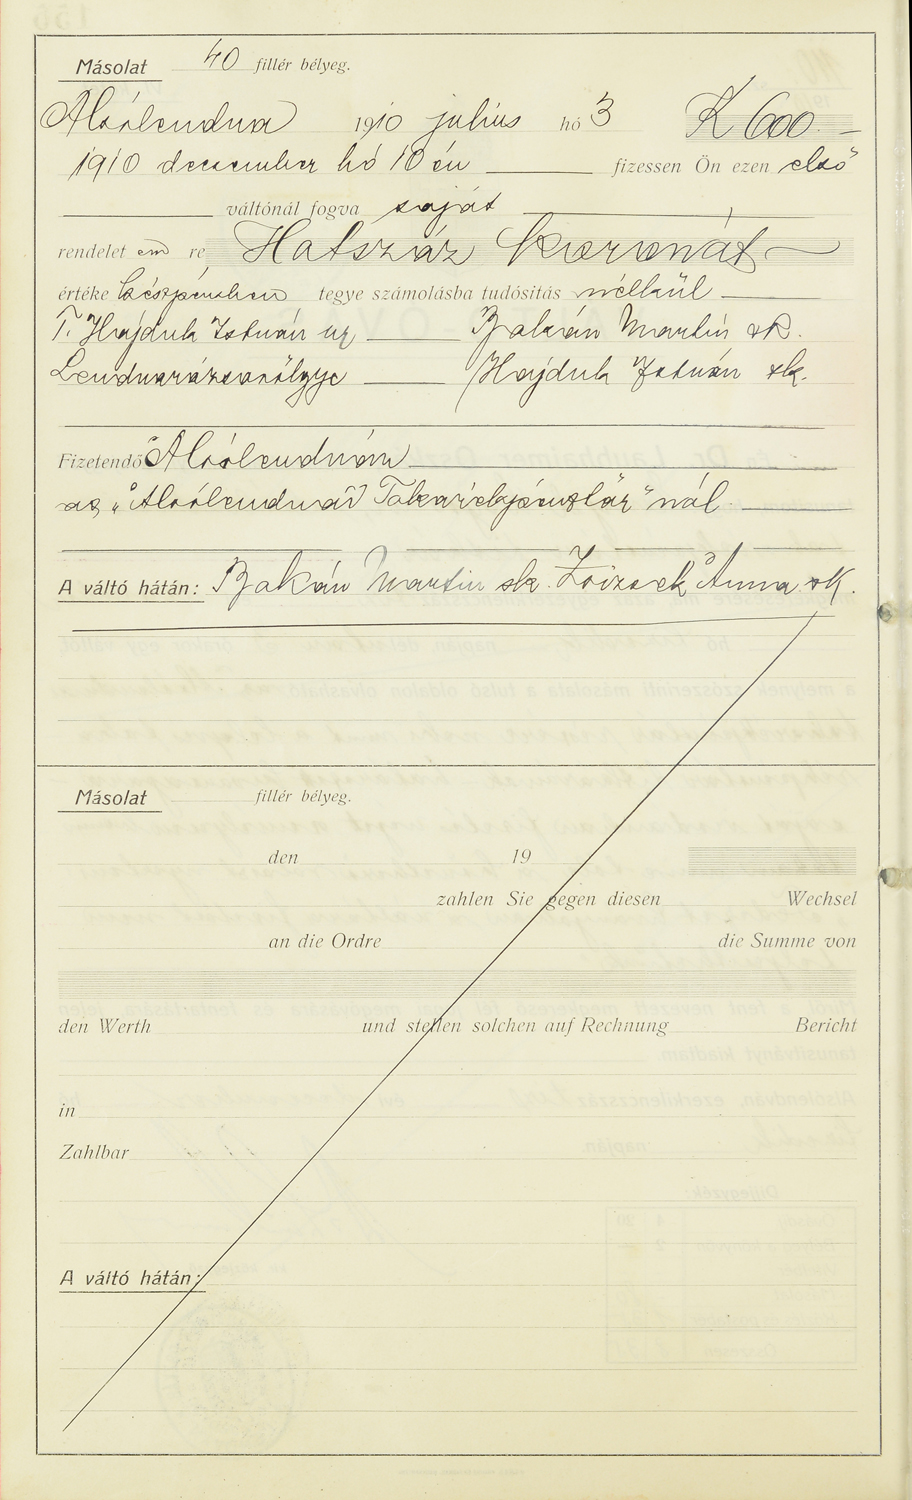 Másolat 40 fillér bélyeg.
Alsólendva 1910 július hó 3 K 600.—
1910 december hó 10 én fizessen Ön ezen első
váltónál fogva saját
rendelet em re Hatszáz koronát
értéke készpénzben tegye számolásba tudósitás nélkül
T. Hajduk István ur Bakán Martin sk.
Lendvarózsavölgye Hajduk István sk.
Fizetendő Alsólendván
az „Alsólendvai Takarékpénztár" nál
A váltó hátán: Bakán Martin sk. Anna sk.
Másolat fillér bélyeg.
den 19
zahlen Sie gegen diesen Wechsel
an die Ordre die Summe von
den Werth und stellen solchen auf Rechnung Bericht
in
Zahlbar
A váltó hátán: